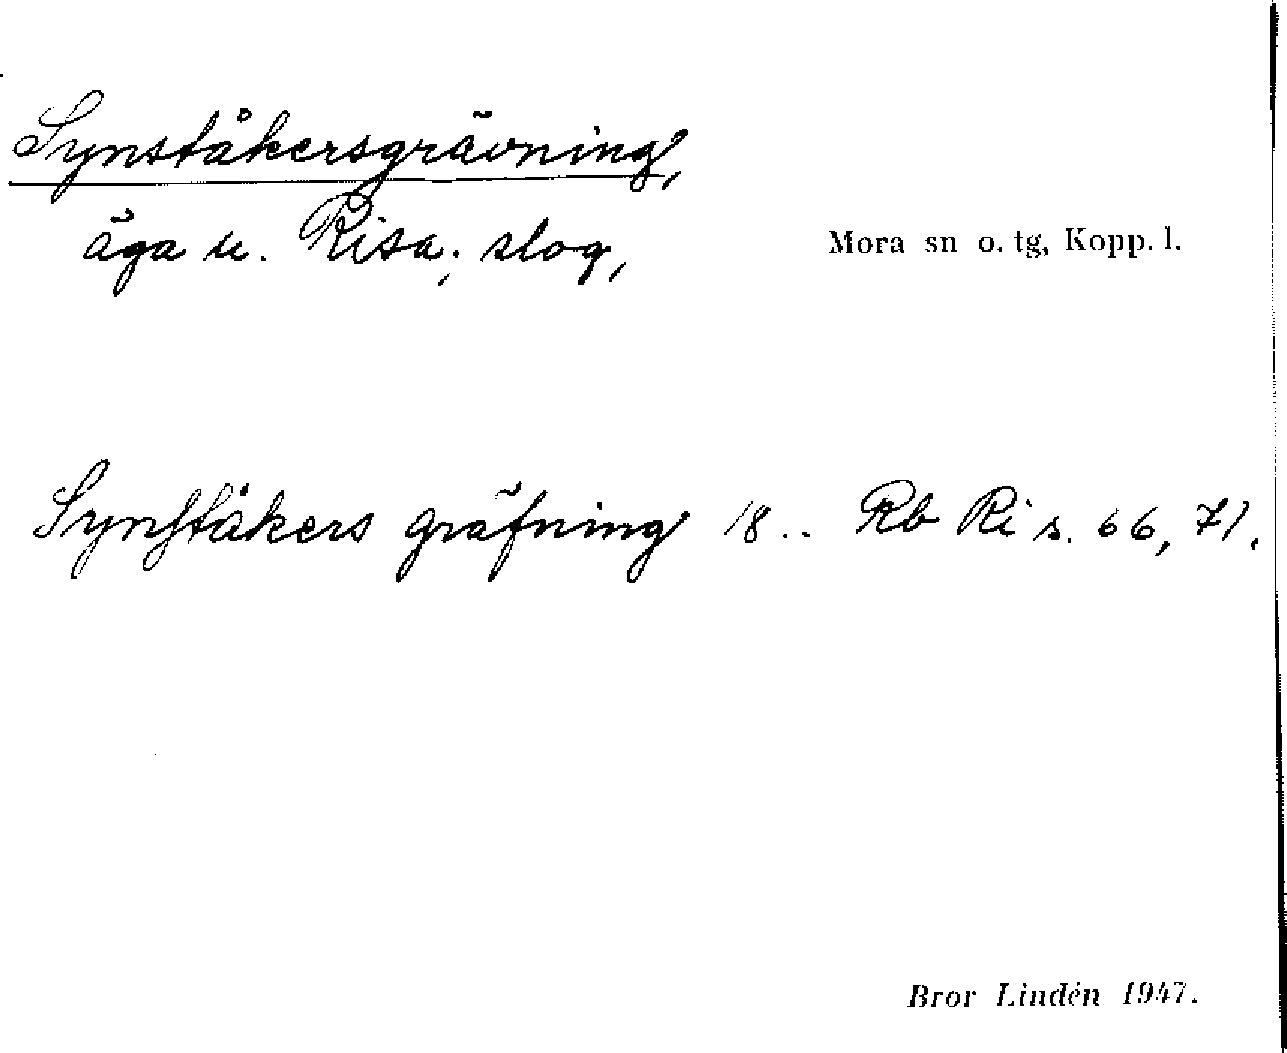 Synståkersgrävning,
äga u. Risa; slog,
Mora sn o. tg, Kopp. l.
Synståkers gräfning 18.. Rb Ri s. 66, 71.
Bror Lindén 1947.